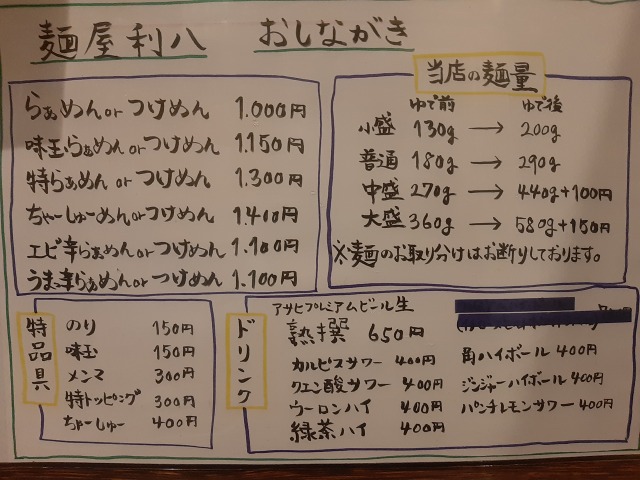 麺屋利八 おしながき
らぁめん or つけめん 1.000円
味玉らぁめん or つけめん 1.150円
特らぁめん or つけめん 1.300円
ちゃーしゅーめん or つけめん 1.400円
エビ辛らぁめん or つけめん 1.100円
うま辛らぁめん or つけめん 1.100円
当店の麺量
ゆで前 ゆで後
小盛 130g → 200g
普通 180g → 290g
中盛 270g → 440g+100円
大盛 360g → 580g+150円
※麺のお取り分けはお断りしております。
特品具
のり 150円
味玉 150円
メンマ 300円
特トッピング 300円
ちゃーしゅー 400円
ドリンク
アサヒプレミアムビール生
熟撰 650円
カルピスサワー 400円
クエン酸サワー 400円
ウーロンハイ 400円
緑茶ハイ 400円
角ハイボール 400円
ジンジャーハイボール 400円
パンチレモンサワー 400円